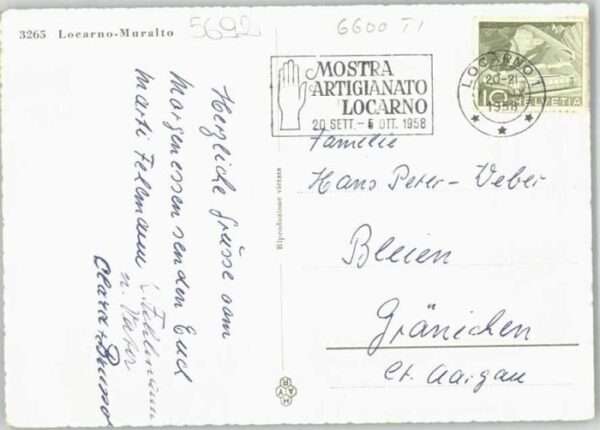 3265 Locarno-Muralto
5692
6600 TI
MOSTRA
ARTIGIANATO
LOCARNO
20 SETT. - 5 OTT. 1958
LOCARNO 1
20-21
1958
10 HELVETIA
Familie
Hans Peter-Weber
Bleien
Gränichen
Ct. Aargau
Herzliche Grüsse vom
Morgenessen senden Euch
Marti Fehlmann
Fehlmann
n. Weber
Clara & Bruno
Riproduzione vietata